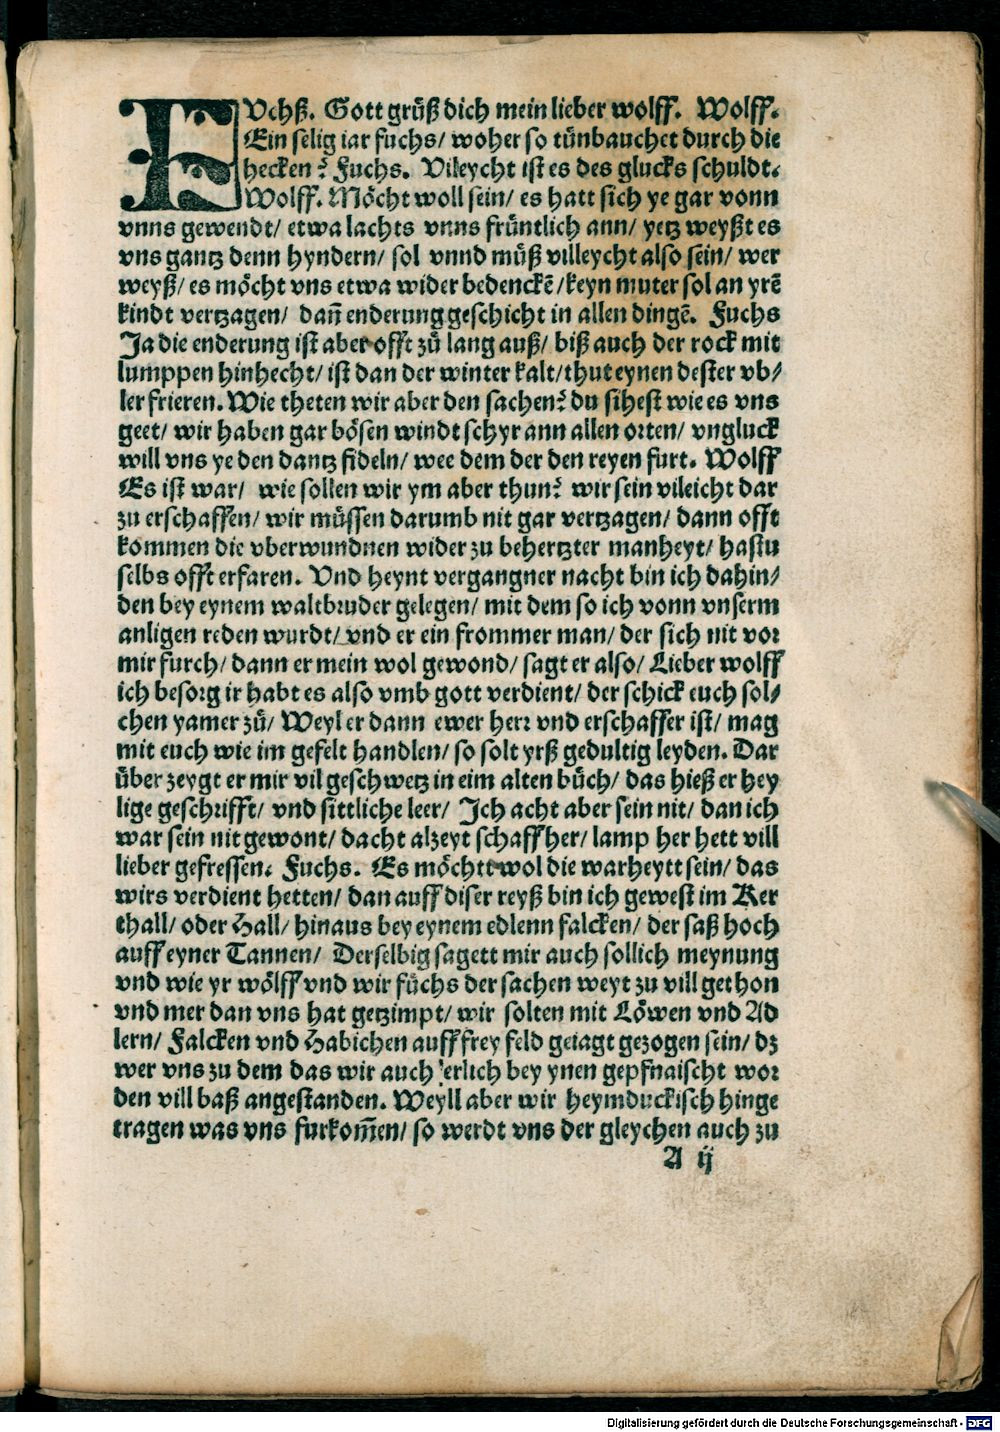 FVchß. Gott grüß dich mein lieber wolff. Wolff.
Ein selig iar fuchs/ woher so tünbauchet durch die
hecken? Fuchs. Vileycht ist es des glucks schuldt.
Wolff. Möcht woll sein/ es hatt sich ye gar vonn
vnns gewendt/ etwa lachts vnns früntlich ann/ yetz weyßt es
vns gantz denn hyndern/ sol vnnd müß villeycht also sein/ wer
weyß/ es möcht vns etwa wider bedenckē/ keyn muter sol an yrē
kindt vertzagen/ dañ enderung geschicht in allen dingē. Fuchs
Ja die enderung ist aber offt zů lang auß/ biß auch der rock mit
lumppen hinhecht/ ist dan der winter kalt/ thut eynen dester vb/
ler frieren. Wie theten wir aber den sachen? du sihest wie es vns
geet/ wir haben gar bösen windt schyr ann allen orten/ vngluck
will vns ye den dantz fideln/ wee dem der den reyen furt. Wolff
Es ist war/ wie sollen wir ym aber thun? wir sein vileicht dar
zu erschaffen/ wir müssen darumb nit gar vertzagen/ dann offt
kommen die vberwundnen wider zu behertzter manheyt/ hastu
selbs offt erfaren. Vnd heynt vergangner nacht bin ich dahin/
den bey eynem waltbruder gelegen/ mit dem so ich vonn vnserm
anligen reden wurdt/ vnd er ein frommer man/ der sich nit vor
mir furch/ dann er mein wol gewond/ sagt er also/ Lieber wolff
ich besorg ir habt es also vmb gott verdient/ der schick euch sol/
chen yamer zů/ Weyl er dann ewer herr vnd erschaffer ist/ mag
mit euch wie im gefelt handlen/ so solt yrß gedultig leyden. Dar
über zeygt er mir vil geschwetz in eim alten bůch/ das hieß er hey
lige geschrifft/ vnd sittliche leer/ Ich acht aber sein nit/ dan ich
war sein nit gewont/ dacht alzeyt schaff her/ lamp her hett vill
lieber gefressen. Fuchs. Es möchtt wol die warheytt sein/ das
wirs verdient hetten/ dan auff diser reyß bin ich gewest im Ker
thall/ oder Hall/ hinaus bey eynem edlenn falcken/ der saß hoch
auff eyner Tannen/ Derselbig sagett mir auch sollich meynung
vnd wie yr wölff vnd wir füchs der sachen weyt zu vill gethon
vnd mer dan vns hat getzimpt/ wir solten mit Löwen vnd Ad
lern/ Falcken vnd Habichen auff frey feld geiagt gezogen sein/ dz
wer vns zu dem das wir auch erlich bey ynen gepfnaischt wor
den vill baß angestanden. Weyll aber wir heymduckisch hinge
tragen was vns furkom̃en/ so werdt vns der gleychen auch zu
A ij
Digitalisierung gefördert durch die Deutsche Forschungsgemeinschaft - DFG